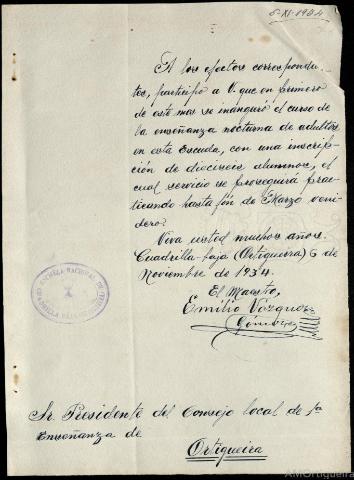 6-XI-1934
A los efectos correspondien-
tes, participo a V. que en primero
de este mes se inauguró el curso de
la enseñanza nocturna de adultos
en esta Escuela, con una inscrip-
ción de dieciseis alumnos, el
cual servicio se proseguirá prac-
ticando hasta fin de Marzo veni-
dero.
Viva usted muchos años.
Cuadrilla-baja (Ortigueira) 6 de
Noviembre de 1934.
El Maestro,
Emilio Vázquez
Gómez
ESCUELA NACIONAL DE
Sr. Presidente del Consejo local de 1ª
Enseñanza de
Ortigueira
AMOrtigueira